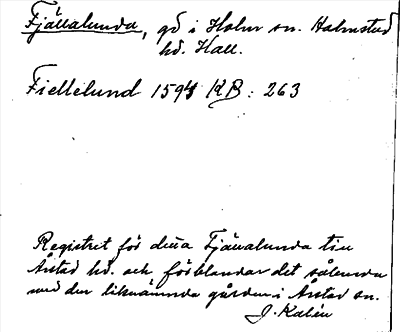 Fjällalunda, gd i Holm sn. Halmstad
hd. Hall.
Fiellelund 1594 KB: 263
Registret för detta Fjällalunda till
Årstad hd. och förblandar det således
med den liknämnda gården i Årstad sn.
J. Kalén